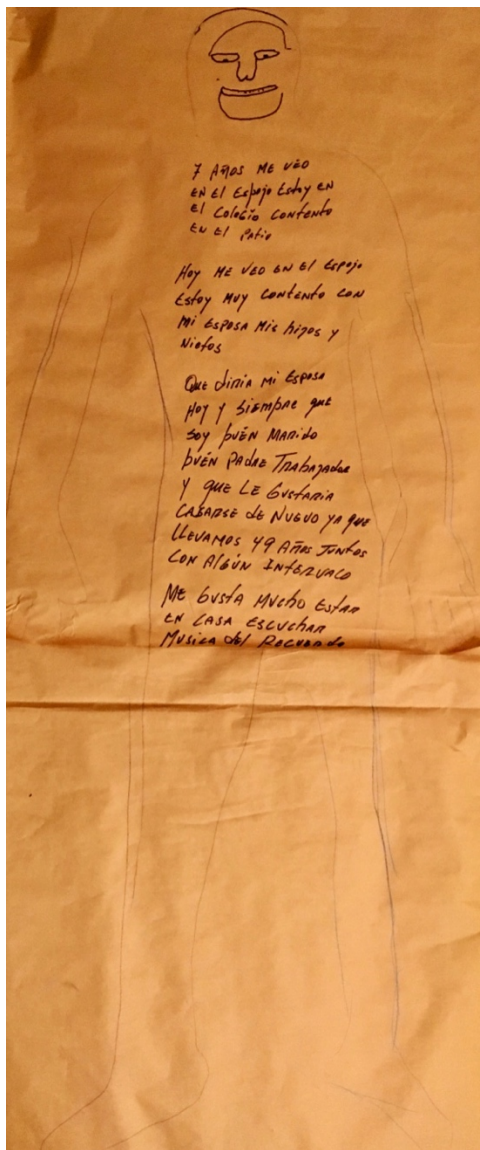 7 Años ME VEO
EN El Espejo Estoy EN
El Colegio Contento
EN El Patio
Hoy ME VEO EN El Espejo
Estoy MUY Contento CON
Mi Esposa Mis hijos y
Nietos
Que diria mi Esposa
Hoy y Siempre que
Soy buén Marido
buén Padre Trabajador
y que LE Gustaria
CASARSE de NUEVO ya que
LLevamos 49 Años Juntos
CON Algún Intervalo
ME Gusta Mucho Estar
EN CASA ESCUCHAR
Musica del Recuerdo